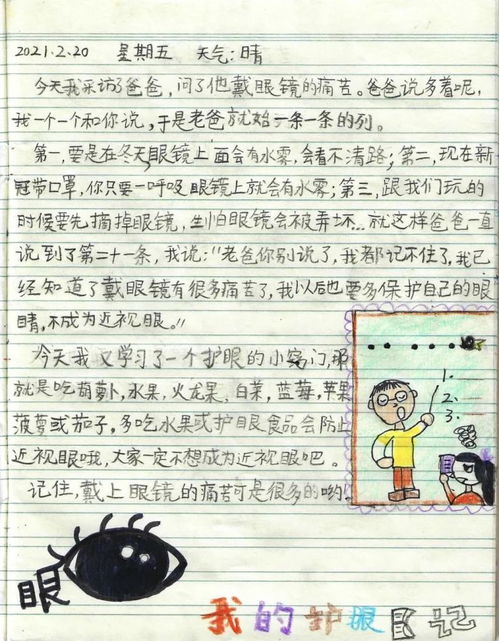 2021.2.20 星期五 天气:晴
今天我采访了爸爸,问了他戴眼镜的痛苦。爸爸说多着呢,
我一个一个和你说,于是老爸就始一条一条的列。
第一,要是在冬天眼镜上面会有水雾,会看不清路;第二,现在新
冠带口罩,你只要一呼吸眼镜上就会有水雾;第三,跟我们玩的
时候要先摘掉眼镜,生怕眼镜会被弄坏…就这样爸爸一直
说到了第二十一条,我说:"老爸你别说了,我都记不住了,我已
经知道了戴眼镜有很多痛苦了,我以后也要多保护自己的眼
睛,不成为近视眼。"
今天我又学习了一个护眼的小窍门,那
就是吃胡萝卜,水果,火龙果,白菜,蓝莓,苹果
菠萝或茄子,多吃水果或护眼食品会防止
近视眼哦,大家一定不想成为近视眼吧。
记住,戴上眼镜的痛苦可是很多的哟!
1.
2.
3.
眼
我的护眼日记